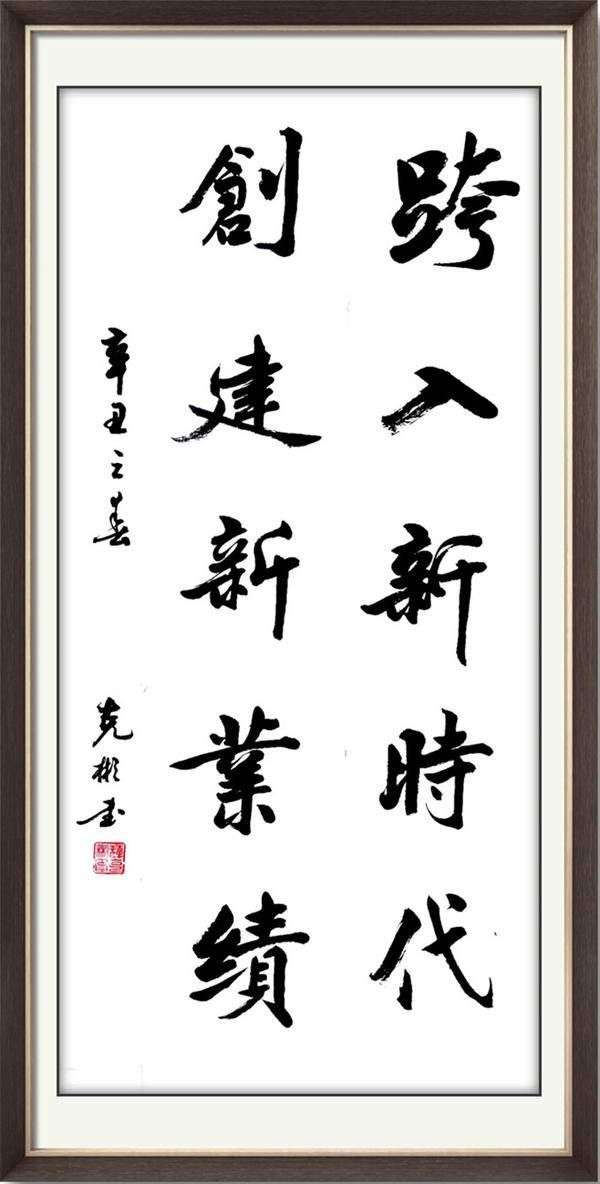 跨入新時代
創建新業績
辛丑之春
克彬书